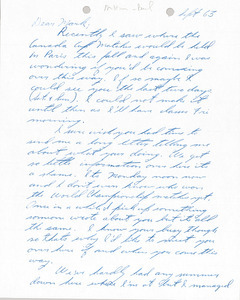 Sept 63
Dear Mark,
Recently, I saw where the
Canada Cup Matches would be held
in Paris this fall and again I was
wondering if you'd be coming
over this way. If so maybe I
could see you the last two days
(Sat & Sun). I could not make it
until then as I'll have classes Fri
morning.
I sure wish you had time to
send me a long letter telling me
about what you doing. We get
so little information over here it's
a shame. It's Monday noon now
and I don't even know who won
the World Championship matches yet.
Once in a while I pick up something
someone wrote about you but it's still
the same. I know you're busy though
so that's why I'd like to meet you
over here if and when you come this
way.
We've hardly had any summer
down here while I'm at that I managed